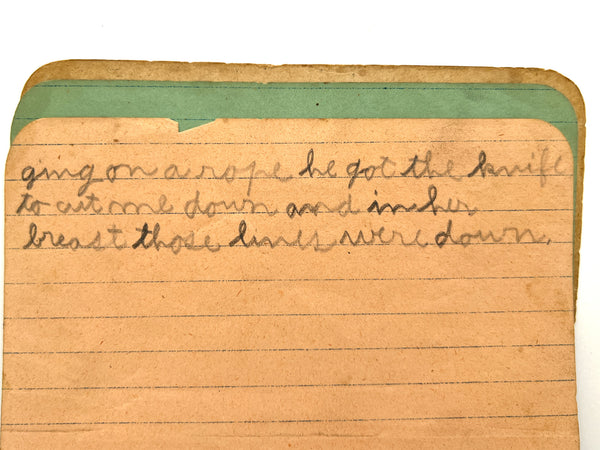 ging on a rope he got the knife
to cut me down and in her
breast those lines were down.